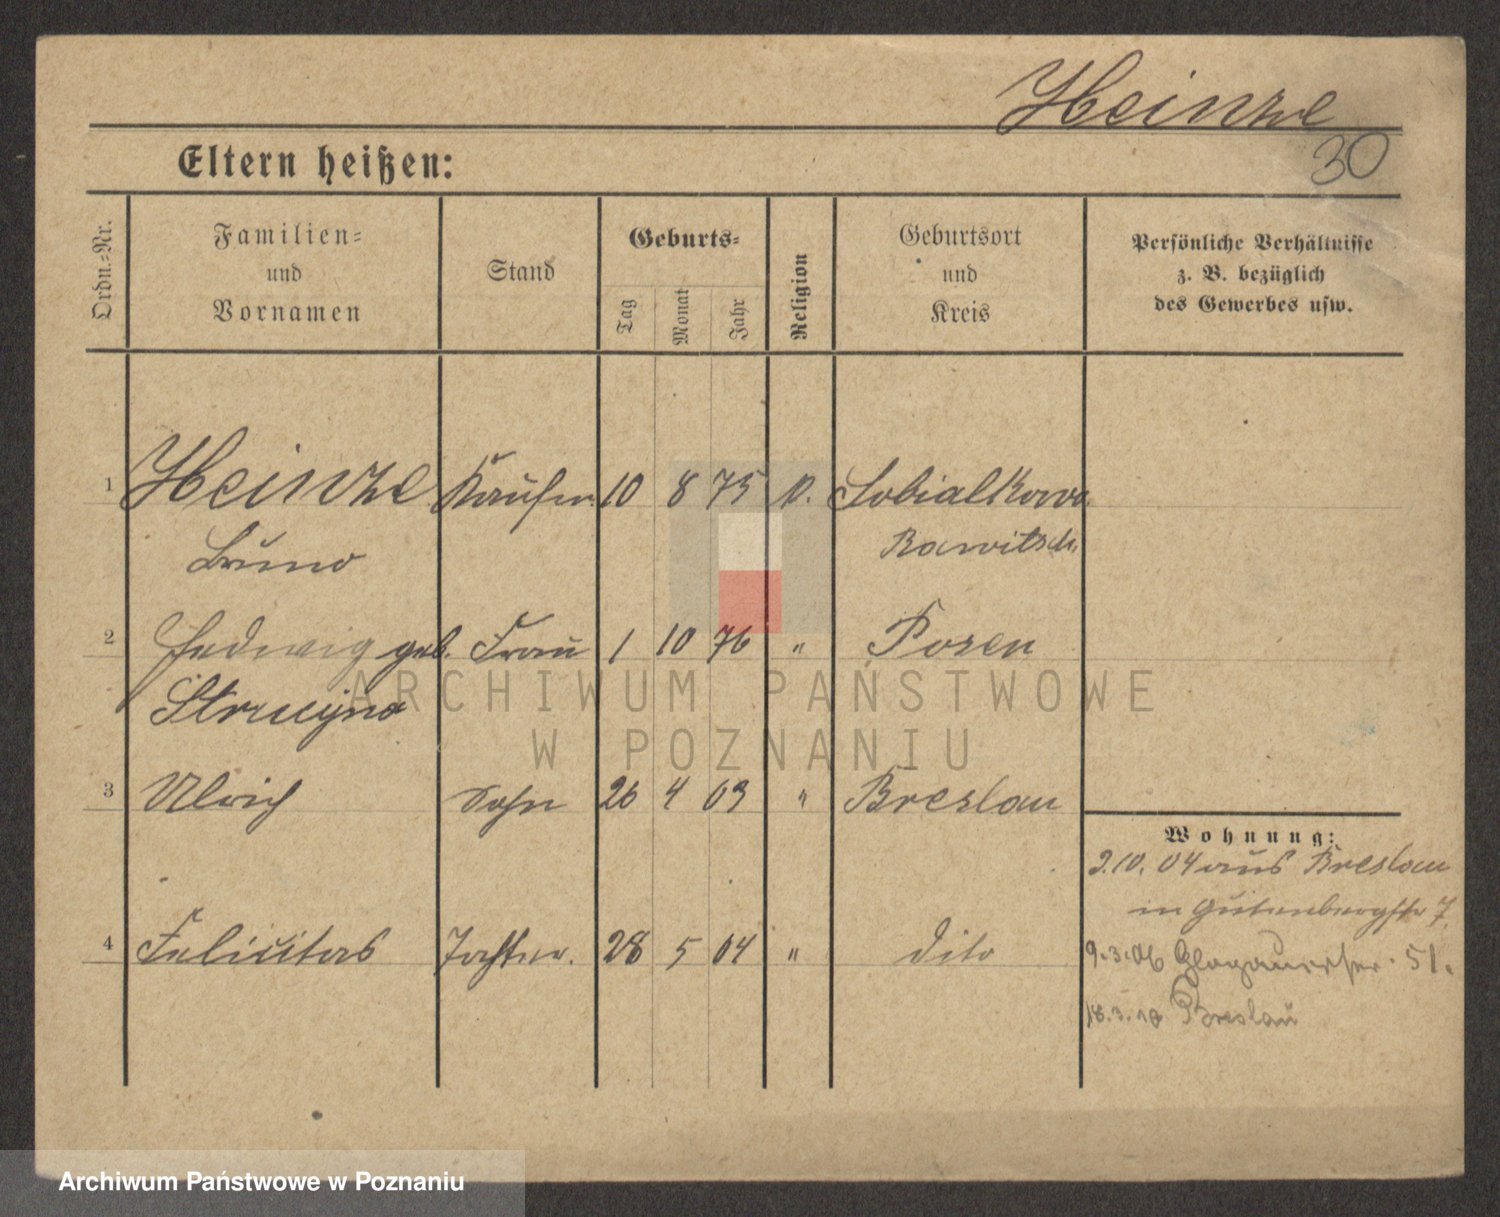 Heinze
30
Eltern heißen:
Ordn.-Nr.
Familien-
und
Vornamen
Stand
Geburts-
Tag
Monat
Jahr
Religion
Geburtsort
und
Kreis
Persönliche Verhältnisse
z. B. bezüglich
des Gewerbes usw.
1 Heinze Kaufm. 10 8 75 Sobialkowo
Bruno Rawitsch.
2 Hedwig geb. Frau 1 10 76 " Posen
3 Ulrich Sohn 26 4 03 " Breslau
Wohnung:
10. 04 aus Breslau
in Gutenbergstr 7.
4 Felicitas Tochter. 28 5 04 " dito
9.3.06 Glogauerstr. 51.
18.3.10 Breslau
ARCHIWUM PAŃSTWOWE
W POZNANIU
Archiwum Państwowe w Poznaniu